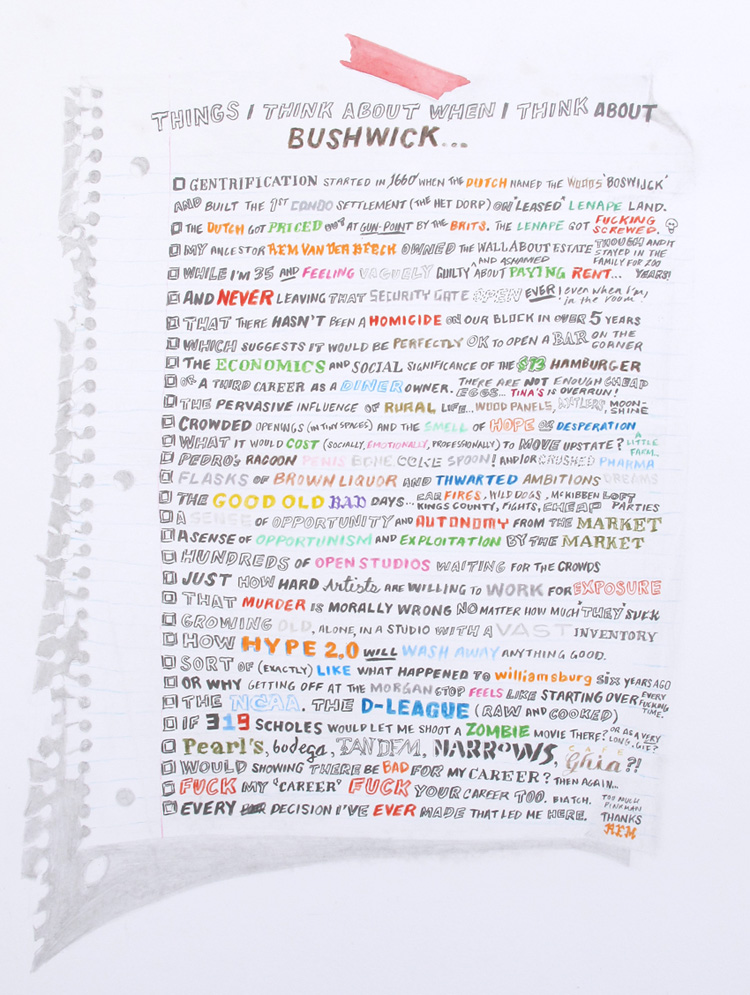 THINGS I THINK ABOUT WHEN I THINK ABOUT
BUSHWICK...
GENTRIFICATION STARTED IN 1660 WHEN THE DUTCH NAMED THE WOODS "BOSWIJCK"
AND BUILT THE 1ST CONDO SETTLEMENT (THE HET DORP) ON "LEASED" LENAPE LAND.
THE DUTCH GOT PRICED OUT AT GUN-POINT BY THE BRITS. THE LENAPE GOT FUCKING SCREWED.
MY ANCESTOR REM VAN DER BEECK OWNED THE WALLABOUT ESTATE THOUGH AND IT STAYED IN THE FAMILY FOR 200 YEARS!
WHILE I'M 35 AND FEELING VAGUELY GUILTY AND ASHAMED ABOUT PAYING RENT...
AND NEVER LEAVING THAT SECURITY GATE OPEN EVER! even when I'm in the room!
THAT THERE HASN'T BEEN A HOMICIDE ON OUR BLOCK IN OVER 5 YEARS
WHICH SUGGESTS IT WOULD BE PERFECTLY OK TO OPEN A BAR ON THE CORNER
THE ECONOMICS AND SOCIAL SIGNIFICANCE OF THE $13 HAMBURGER
OR A THIRD CAREER AS A DINER OWNER. THERE ARE NOT ENOUGH CHEAP EGGS... TINA'S IS OVERRUN!
THE PERVASIVE INFLUENCE OF RURAL LIFE... WOOD PANELS, ANTLERS, MOON-SHINE
CROWDED OPENINGS (IN TINY SPACES) AND THE SMELL OF HOPE OR DESPERATION
WHAT IT WOULD COST (SOCIALLY, EMOTIONALLY, PROFESSIONALLY) TO MOVE UPSTATE? A LITTLE FARM..
PEDRO'S RACOON PENIS BONE COKE SPOON! AND/OR CRUSHED PHARMA
FLASKS OF BROWN LIQUOR AND THWARTED AMBITIONS DREAMS
THE GOOD OLD BAD DAYS... CAR FIRES, WILD DOGS, MCKIBBEN LOFT KINGS COUNTY, FIGHTS, CHEAP PARTIES
A SENSE OF OPPORTUNITY AND AUTONOMY FROM THE MARKET
A SENSE OF OPPORTUNISM AND EXPLOITATION BY THE MARKET
HUNDREDS OF OPEN STUDIOS WAITING FOR THE CROWDS
JUST HOW HARD Artists ARE WILLING TO WORK FOR EXPOSURE
THAT MURDER IS MORALLY WRONG NO MATTER HOW MUCH "THEY" SUCK
GROWING OLD, ALONE, IN A STUDIO WITH A VAST INVENTORY
HOW HYPE 2.0 WILL WASH AWAY ANYTHING GOOD.
SORT OF (EXACTLY) LIKE WHAT HAPPENED TO williamsburg SIX YEARS AGO
OR WHY GETTING OFF AT THE MORGAN STOP FEELS LIKE STARTING OVER EVERY FUCKING TIME.
THE NCAA. THE D-LEAGUE (RAW AND COOKED)
IF 319 SCHOLES WOULD LET ME SHOOT A ZOMBIE MOVIE THERE? OR AS A VERY LONG .GIF?
Pearl's, bodega, TANDEM, NARROWS, CAFE Ghia?!
WOULD SHOWING THERE BE BAD FOR MY CAREER? THEN AGAIN...
FUCK MY "CAREER" FUCK YOUR CAREER TOO. BIATCH. TOO MUCH PINKMAN
EVERY DECISION I'VE EVER MADE THAT LED ME HERE. THANKS REM